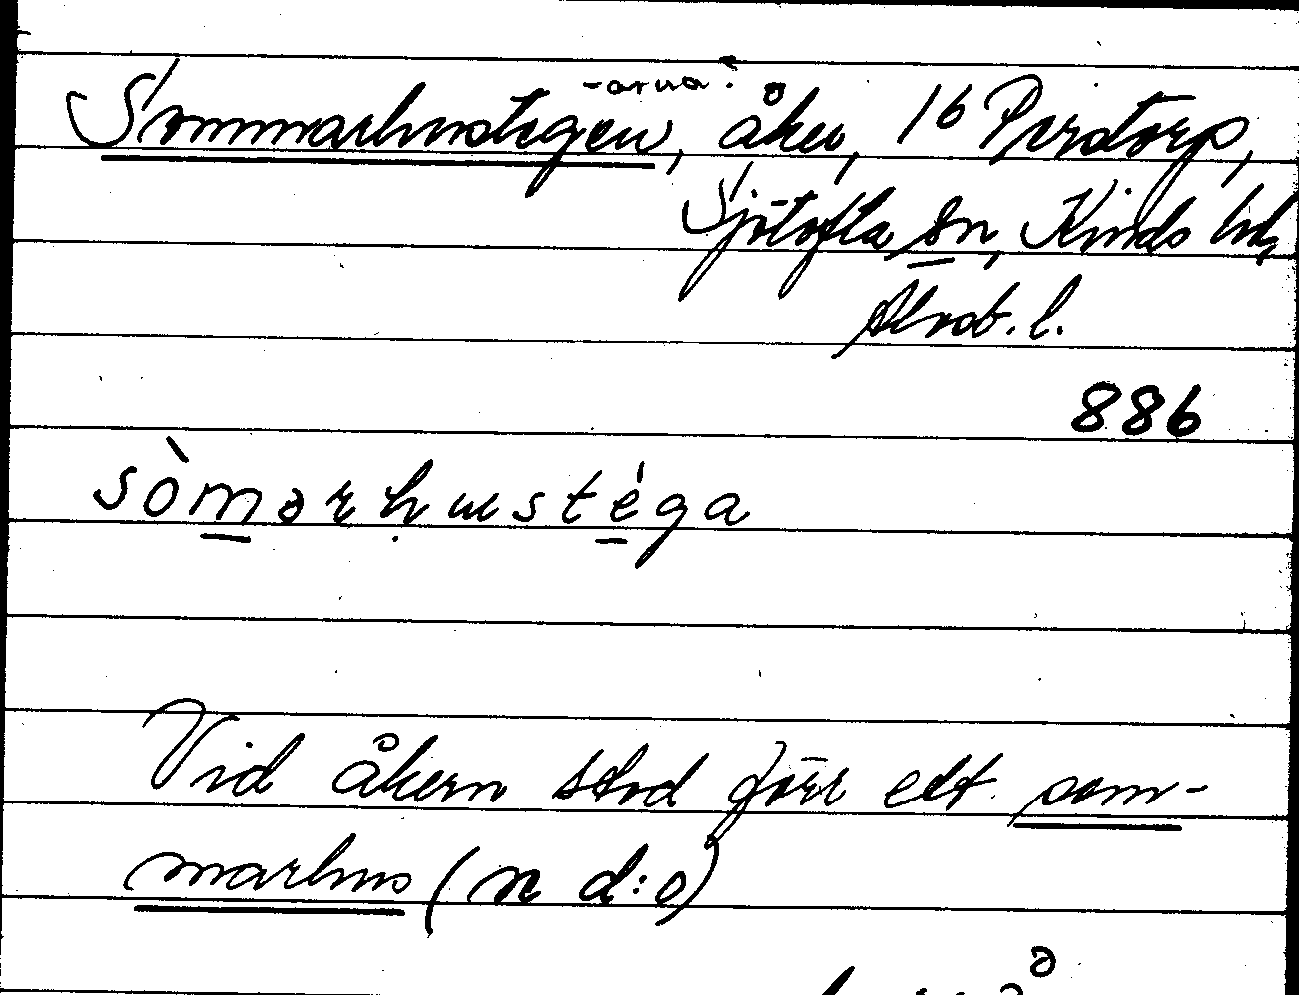 -arna?
Sommarhustegen, åker, 16 Perstorp,
Sjötofta sn, Kinds hd,
Älvsb. l.
886
sòmərhustéga
Vid åkern stod förr ett som-
marhus (n d:o)